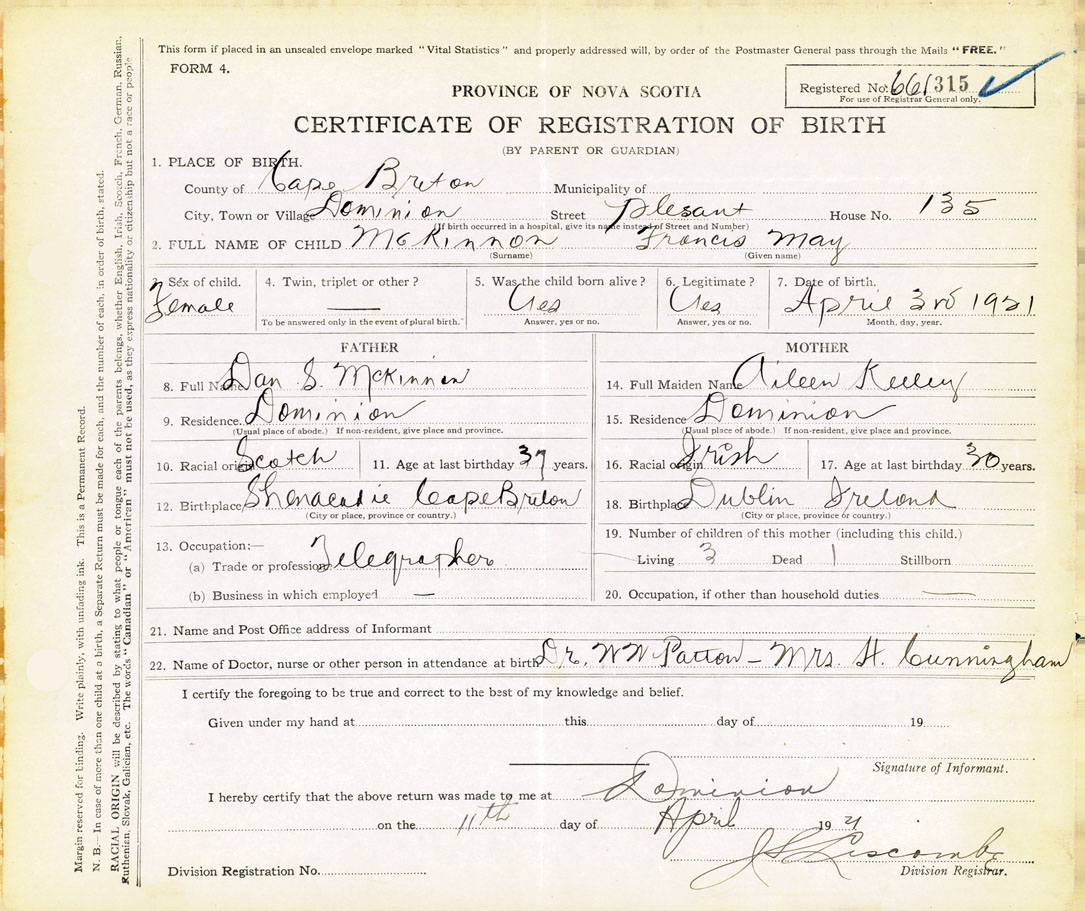 This form if placed in an unsealed envelope marked "Vital Statistics" and properly addressed will, by order of the Postmaster General pass through the Mails "FREE."
FORM 4.
Registered No. 661315
For use of Registrar General only.
PROVINCE OF NOVA SCOTIA
CERTIFICATE OF REGISTRATION OF BIRTH
(BY PARENT OR GUARDIAN)
1. PLACE OF BIRTH.
County of Cape Breton Municipality of
City, Town or Village Dominion Street Plesant House No. 135
(If birth occurred in a hospital, give its name instead of Street and Number)
2. FULL NAME OF CHILD McKinnon Francis May
(Surname) (Given name)
3. Sex of child. 4. Twin, triplet or other? 5. Was the child born alive? 6. Legitimate? 7. Date of birth.
Female — Yes Yes April 3rd 1921
To be answered only in the event of plural birth. Answer, yes or no. Answer, yes or no. Month, day, year.
FATHER
8. Full Name Dan S. McKinnon
9. Residence. Dominion
(Usual place of abode.) If non-resident, give place and province.
10. Racial origin Scotch 11. Age at last birthday 37 years.
12. Birthplace Shenacadie Cape Breton
(City or place, province or country.)
13. Occupation:—
(a) Trade or profession Telegrapher
(b) Business in which employed —
MOTHER
14. Full Maiden Name Aileen Kelley
15. Residence Dominion
(Usual place of abode.) If non-resident, give place and province.
16. Racial origin Irish 17. Age at last birthday 30 years.
18. Birthplace Dublin Ireland
(City or place, province or country.)
19. Number of children of this mother (including this child.)
Living 3 Dead 1 Stillborn
20. Occupation, if other than household duties —
21. Name and Post Office address of Informant
22. Name of Doctor, nurse or other person in attendance at birth Dr. W W Patton – Mrs. H. Cunningham
I certify the foregoing to be true and correct to the best of my knowledge and belief.
Given under my hand at this day of 19
Signature of Informant.
I hereby certify that the above return was made to me at Dominion
on the 11th day of April 1921
J S Liscombe
Division Registration No. Division Registrar.
Margin reserved for binding. Write plainly, with unfading ink. This is a Permanent Record.
N. B.—In case of more than one child at a birth, a Separate Return must be made for each, and the number of each, in order of birth, stated.
RACIAL ORIGIN will be described by stating to what people or tongue each of the parents belongs, whether English, Irish, Scotch, French, German, Russian,
Ruthenian, Slovak, Galician, etc. The words "Canadian" or "American" must not be used, as they express nationality or citizenship but not a race or people